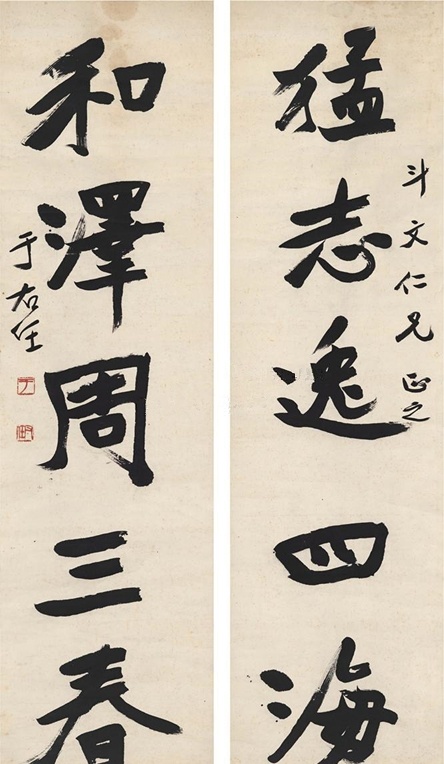 斗文仁兄正之
猛志逸四海
和澤周三春
于右任